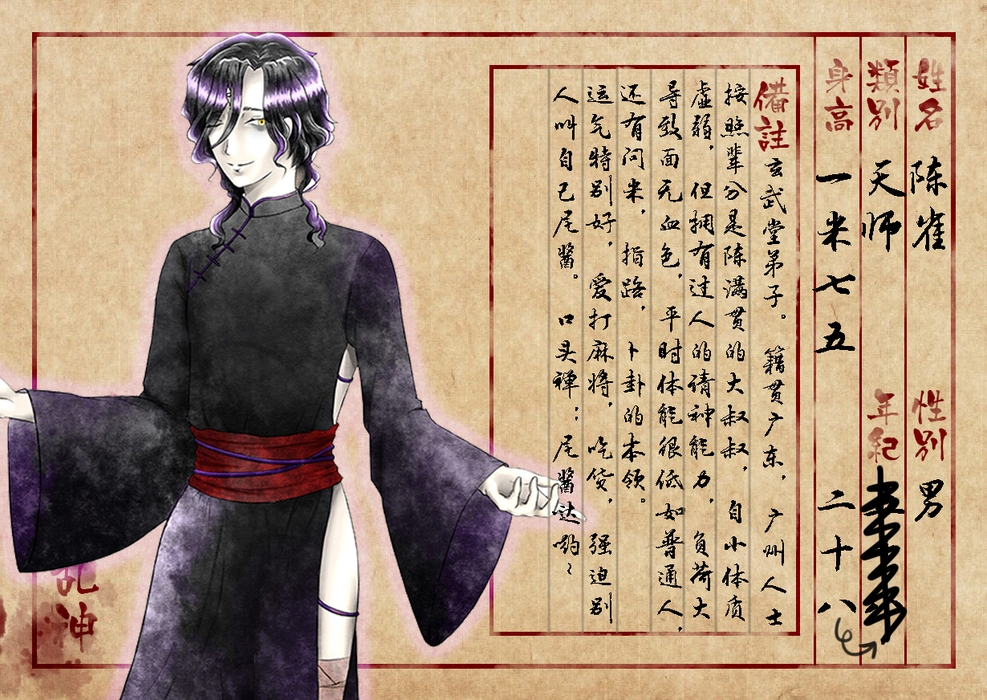 姓名 陈雀 性別 男
類別 天师 年紀
身高 一米七五 二十八
備註 玄武堂弟子。籍贯广东，广州人士
按照辈分是陈满贯的大叔叔，自小体质
虚弱，但拥有过人的请神能力，负荷大
导致面无血色，平时体能很低如普通人，
还有问米，指路，卜卦的本领。
运气特别好，爱打麻将，吃货，强迫别
人叫自己尾醬。口头禅：尾醬达哟~
乱神